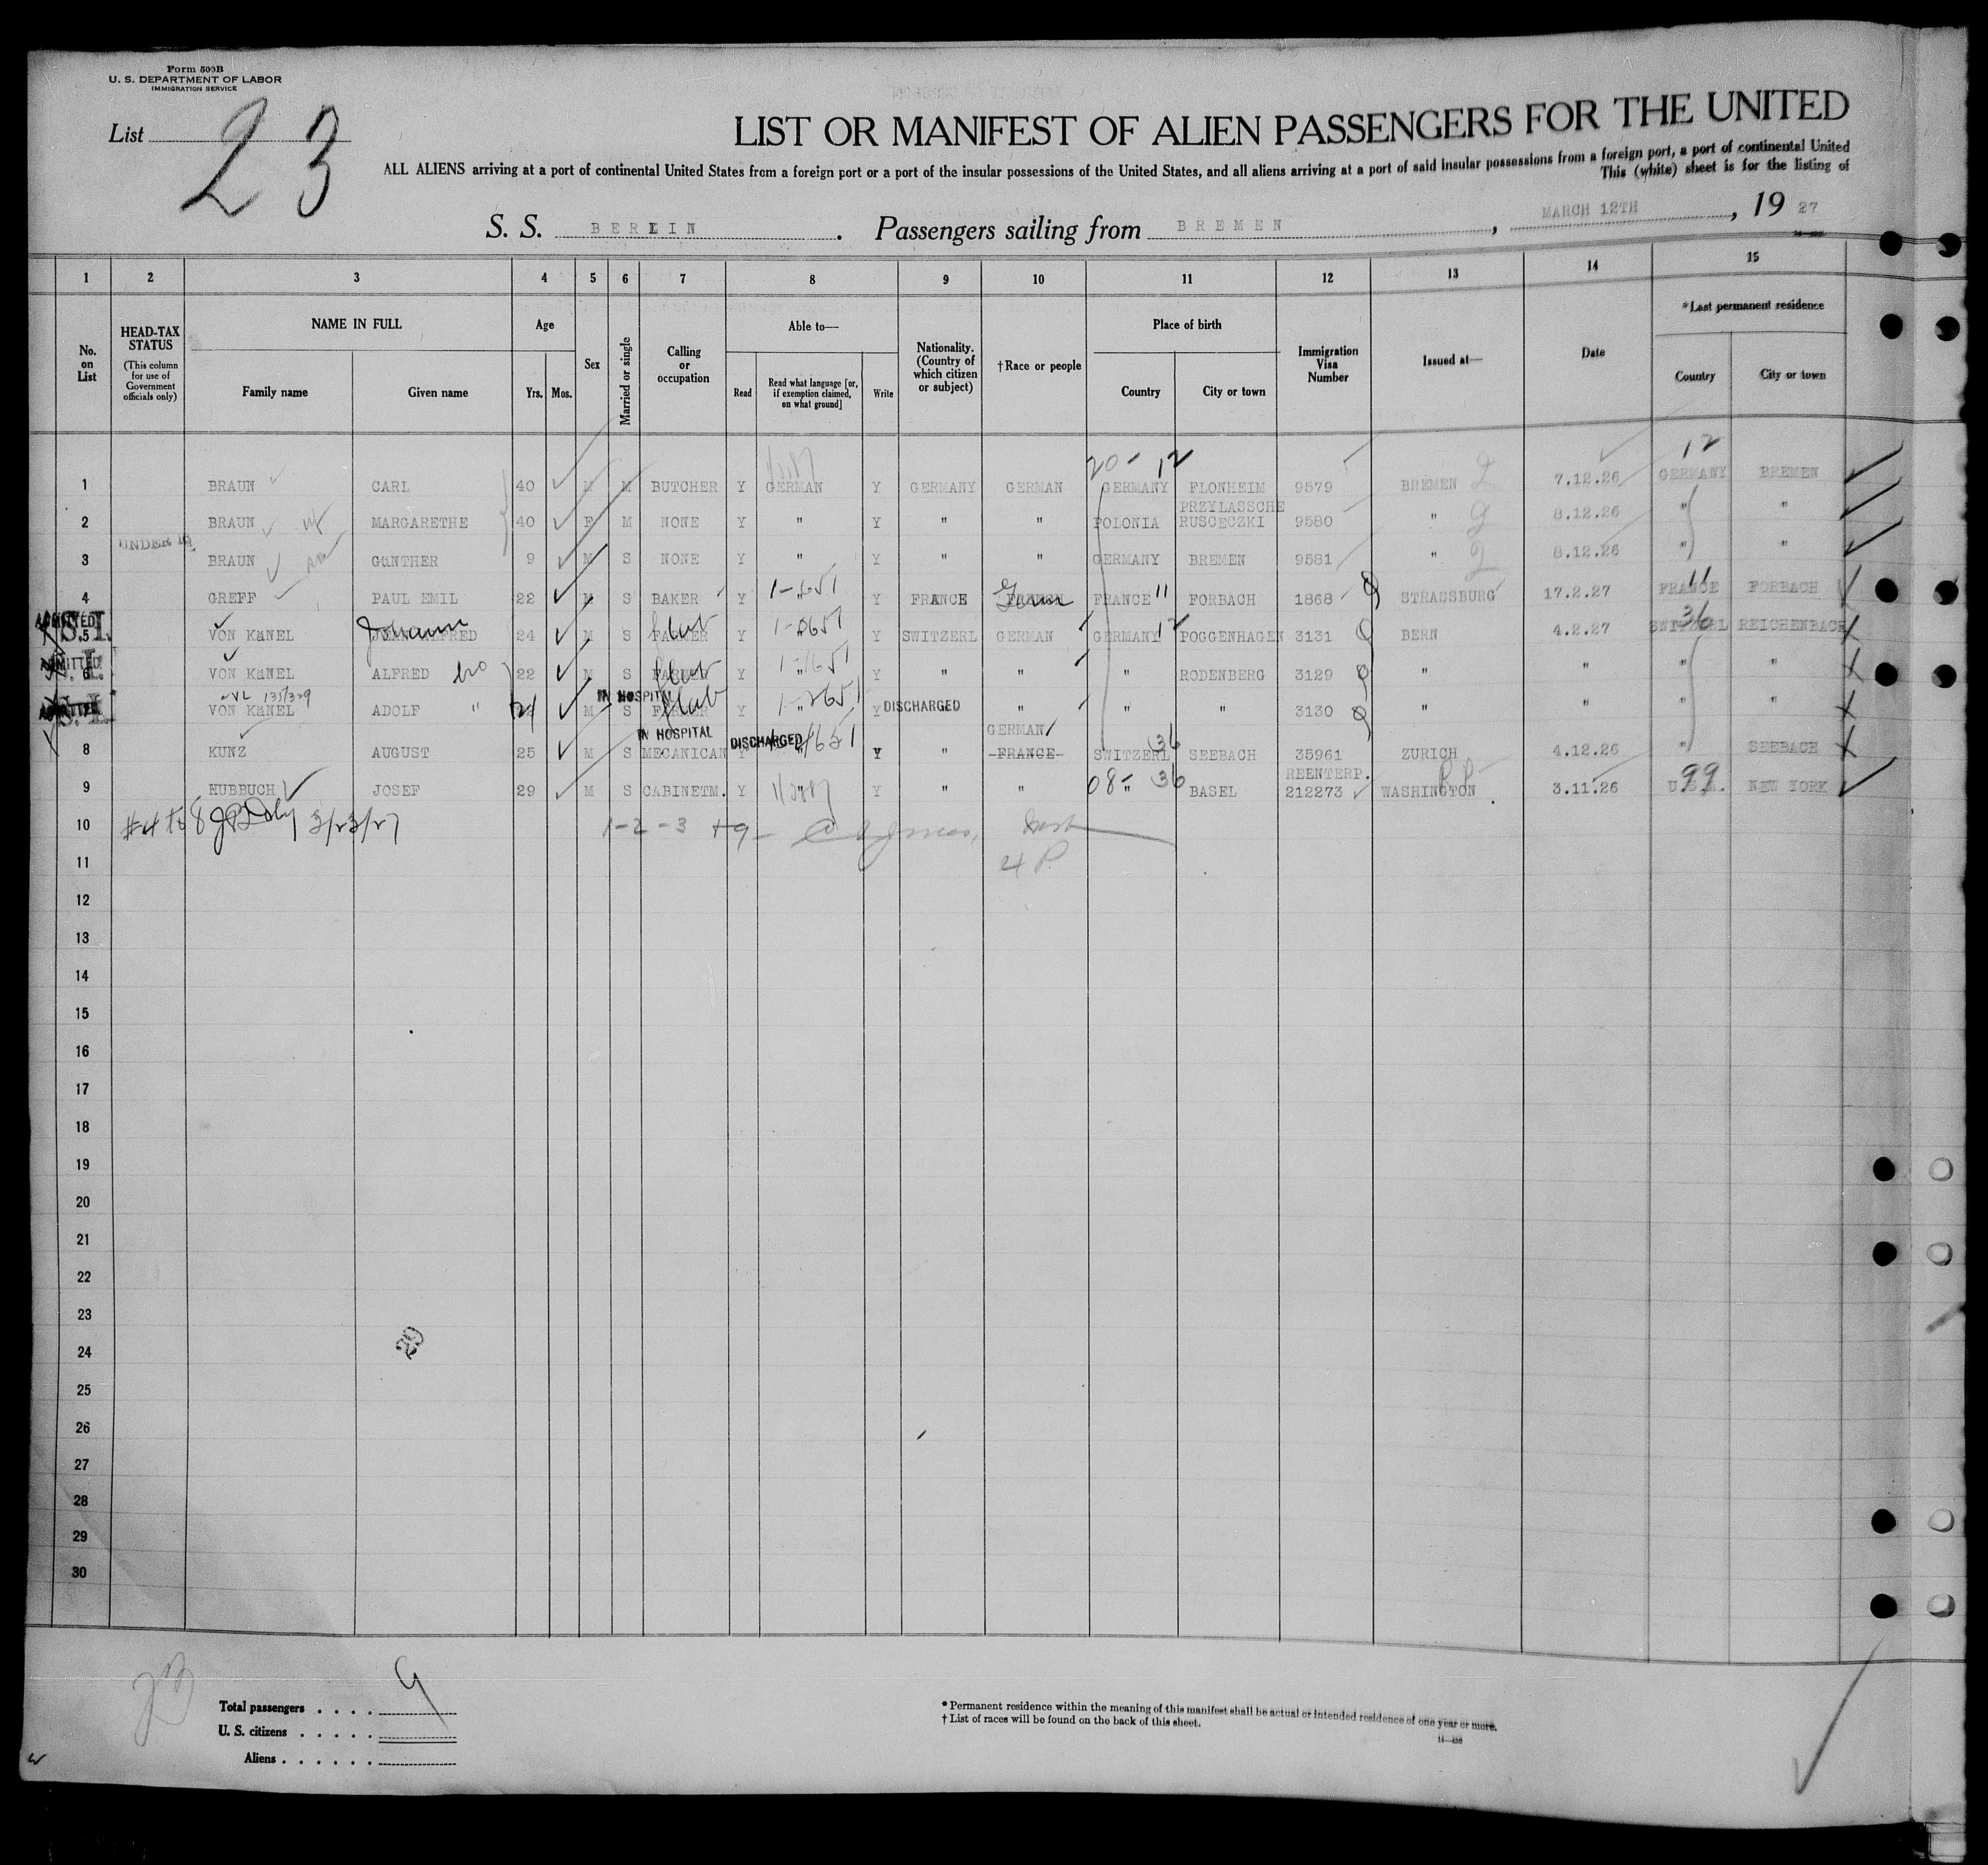 Form 500B
U. S. DEPARTMENT OF LABOR
IMMIGRATION SERVICE
List 23
LIST OR MANIFEST OF ALIEN PASSENGERS FOR THE UNITED
ALL ALIENS arriving at a port of continental United States from a foreign port or a port of the insular possessions of the United States, and all aliens arriving at a port of said insular possessions from a foreign port, a port of continental United
This (white) sheet is for the listing of
S. S. BERLIN. Passengers sailing from BREMEN, MARCH 12TH, 19 27
1 2 3 4 5 6 7 8 9 10 11 12 13 14 15
No. on List
HEAD-TAX STATUS (This column for use of Government officials only)
NAME IN FULL Family name Given name
Age Yrs. Mos.
Sex
Married or single
Calling or occupation
Able to— Read Read what language [or, if exemption claimed, on what ground] Write
Nationality. (Country of which citizen or subject)
†Race or people
Place of birth Country City or town
Immigration Visa Number
Issued at—
Date
*Last permanent residence Country City or town
20- 12 12
1 BRAUN CARL 40 M M BUTCHER Y GERMAN Y GERMANY GERMAN GERMANY FLONHEIM 9579 BREMEN 2 7.12.26 GERMANY BREMEN
2 BRAUN wf MARGARETHE 40 F M NONE Y " Y " " POLONIA PRZYLASSCHE RUSCECZKI 9580 " 2 8.12.26 " "
UNDER 16
3 BRAUN son GüNTHER 9 M S NONE Y " Y " " GERMANY BREMEN 9581 " 2 8.12.26 " "
4 GREFF PAUL EMIL 22 M S BAKER Y 1-651 Y FRANCE German FRANCE 11 FORBACH 1868 STRASSBURG 17.2.27 FRANCE 11 FORBACH
ADMITTED S.I.
5 VON KäNEL Johann ALFRED 24 M S FARMER f lab Y 1-651 Y SWITZERL GERMAN GERMANY 12 POGGENHAGEN 3131 BERN 4.2.27 SWITZERL 36 REICHENBACH
ADMITTED S.I.
6 VON KäNEL ALFRED bro 22 M S FARMER f lab Y 1-651 Y " " " RODENBERG 3129 " " " "
ADMITTED S.I.
IN HOSPITAL DISCHARGED
7 VON KäNEL ADOLF " 21 M S FARMER f lab Y 1-2651 Y " " " " 3130 " " " "
IN HOSPITAL DISCHARGED
8 KUNZ AUGUST 25 M S MECANICAN Y " Y " GERMAN FRANCE SWITZERL 36 SEEBACH 35961 ZURICH 4.12.26 " SEEBACH
9 HUBBUCH JOSEF 29 M S CABINETM. Y " Y " " 08- 36 " BASEL REENTERP. 212273 WASHINGTON 3.11.26 U.S.A. 99 NEW YORK
10 #4 to 8 3/23/27 1-2-3 +9-
11
12
13
14
15
16
17
18
19
20
21
22
23
24
25
26
27
28
29
30
Total passengers . . . . 9
U. S. citizens . . . . .
Aliens . . . . . .
* Permanent residence within the meaning of this manifest shall be actual or intended residence of one year or more.
† List of races will be found on the back of this sheet.